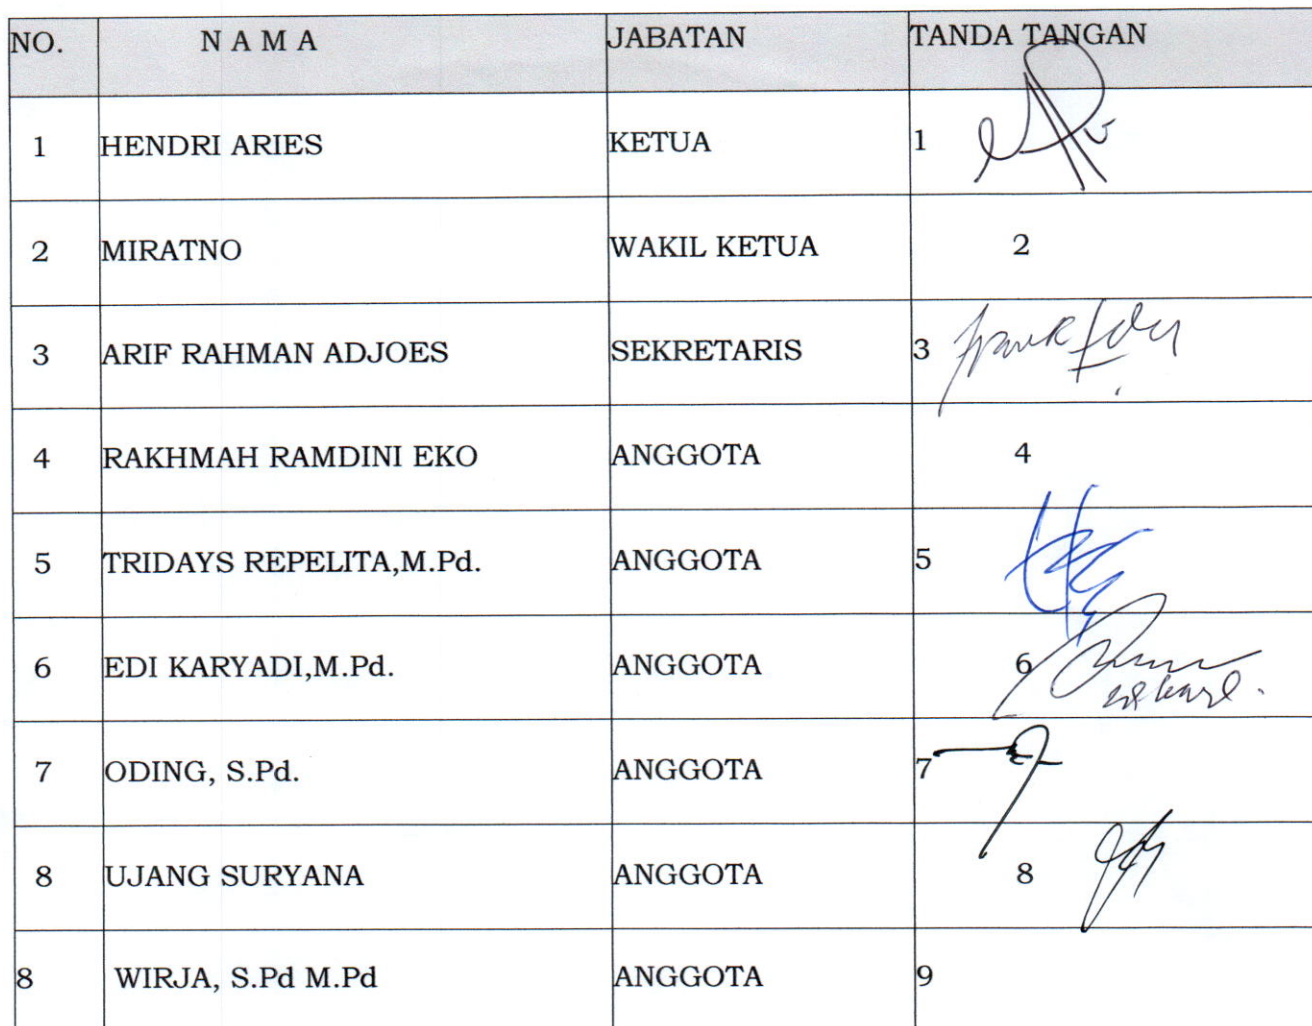 NO. N A M A JABATAN TANDA TANGAN
1 HENDRI ARIES KETUA 1
2 MIRATNO WAKIL KETUA 2
3 ARIF RAHMAN ADJOES SEKRETARIS 3
4 RAKHMAH RAMDINI EKO ANGGOTA 4
5 TRIDAYS REPELITA,M.Pd. ANGGOTA 5
6 EDI KARYADI,M.Pd. ANGGOTA 6
7 ODING, S.Pd. ANGGOTA 7
8 UJANG SURYANA ANGGOTA 8
8 WIRJA, S.Pd M.Pd ANGGOTA 9